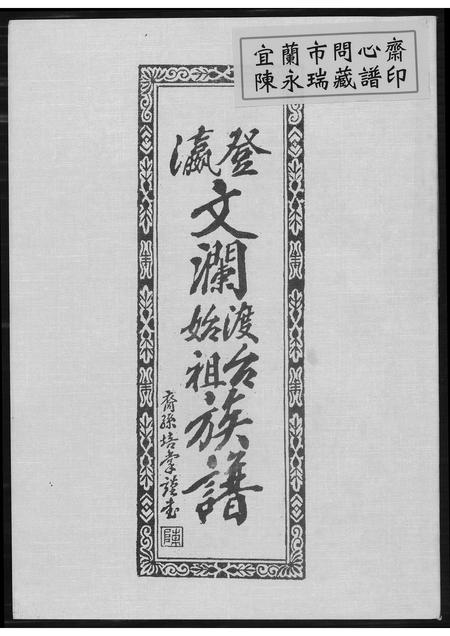 宜蘭市問心齋
陳永瑞藏譜印
登瀛
文瀾
渡台
始祖
族譜
裔孫培掌謹書
陳